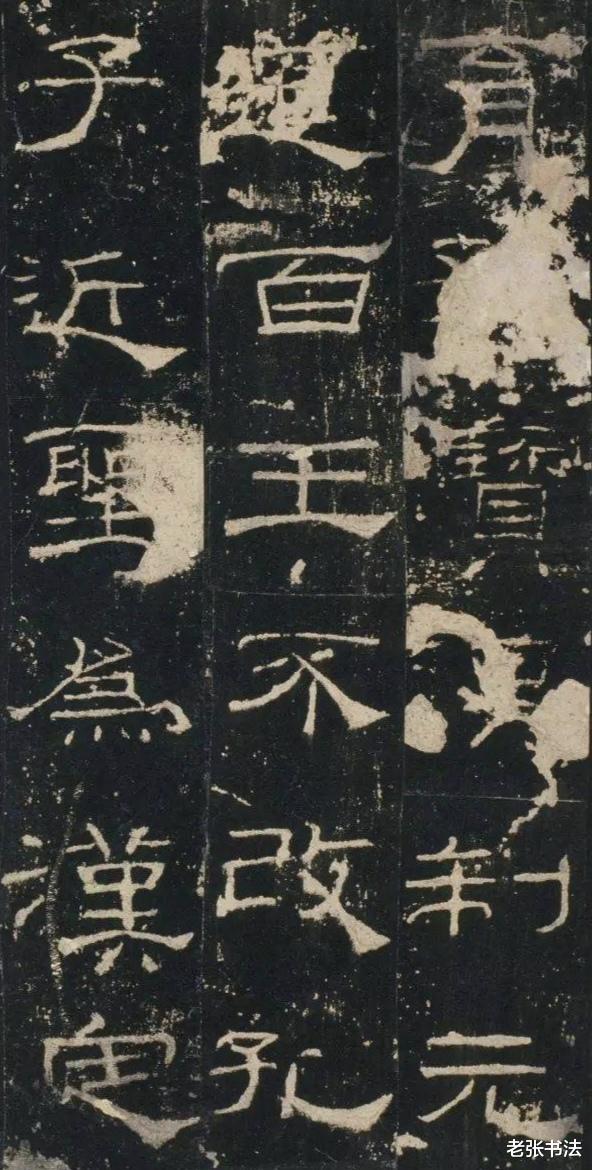 育寶制元
道百王不改孔
子近聖爲漢定
老张书法